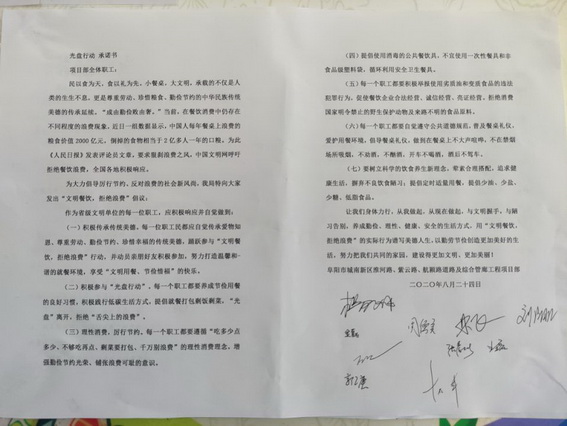 光盘行动 承诺书
项目部全体职工：
民以食为天，食以礼为先，小餐桌，大文明，承载的不仅是人
类的生生不息，更是尊重劳动、珍惜粮食、勤俭节约的中华民族传统
美德的传承延续。“成由勤俭败由奢。”当前，在餐饮消费中仍存在
不同程度的浪费现象，近日一组数据显示，中国人每年餐桌上浪费的
粮食价值2000亿元，倒掉的食物相当于2亿多人一年的口粮。为此
《人民日报》发表评论员文章，要求狠刹浪费之风，中国文明网呼吁
拒绝餐饮浪费，全国各地积极响应。
为大力倡导厉行节约、反对浪费的社会新风尚，我局特向大家
发出“文明餐饮，拒绝浪费”倡议：
作为省级文明单位的每一位职工，应积极响应并自觉做到：
（一）积极传承传统美德。每一位职工民都应自觉传承爱物知
恩、尊重劳动、勤俭节约、珍惜幸福的传统美德，踊跃参与“文明餐
饮，拒绝浪费”行动，并动员亲朋好友积极参加，努力打造温馨和
谐的就餐环境，享受“文明用餐、节俭惜福”的快乐。
（二）积极参与“光盘行动”。每一个职工都要养成节俭用餐
的良好习惯，积极践行低碳生活方式，提倡就餐打包剩饭剩菜，“光
盘”离开，拒绝“舌尖上的浪费”。
（三）理性消费，厉行节约。每一个职工都要遵循“吃多少点
多少、不够吃再点、剩菜要打包、千万别浪费”的理性消费理念，增
强勤俭节约光荣、铺张浪费可耻的意识。
（四）提倡使用消毒的公共餐饮具，不宜使用一次性餐具和非
食品级塑料袋，循环利用安全卫生餐具。
（五）每一个职工都要积极举报使用劣质油和变质食品的违法
犯罪行为，促使餐饮企业合法经营、诚信经营、亮证经营，拒绝消费
国家明令禁止的野生保护动物及来路不明的食品原料。
（六）每一个职工都要自觉遵守公共道德规范，普及餐桌礼仪，
爱护用餐环境，倡导餐桌礼仪，做到在餐桌上不大声喧哗、不在禁烟
场所吸烟，不劝酒、不酗酒，开车不喝酒，酒后不驾车。
（七）要树立科学的饮食养生新理念，荤素合理搭配，追求健
康生活，摒弃不良饮食陋习；提倡定时适量用餐，提倡少油、少盐、
少糖、低脂食品。
让我们身体力行，从我做起，从现在做起，与文明握手，与陋
习告别，养成勤俭、理性、健康、安全的生活方式，用“文明餐饮，
拒绝浪费”的实际行为谱写美德人生，以勤劳节俭创造更加美好的生
活，努力把我们共同的家园，建设得更加文明、更加美丽！
阜阳市城南新区淮河路、紫云路、航颍路道路及综合管廊工程项目部
二〇二〇年八月二十四日